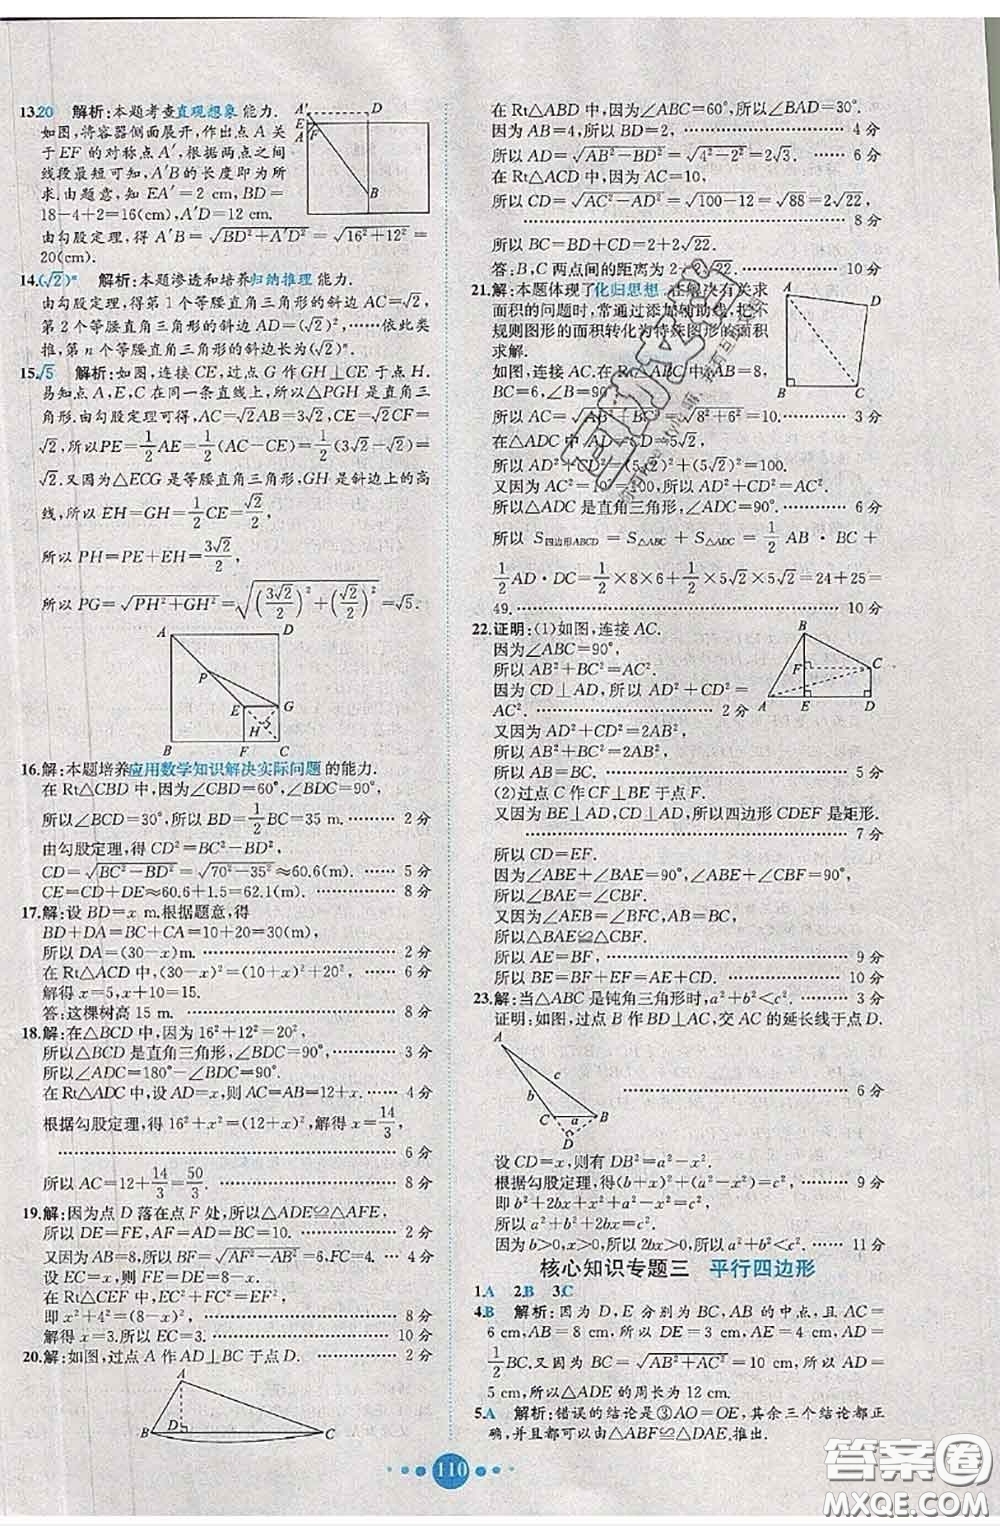 13.20 解析:本题考查直观想象能力.
如图,将容器侧面展开,作出点 A 关
于 EF 的对称点 A′,根据两点之间
线段最短可知,A′B 的长度即为所
求.由题意,知 EA′=2 cm,BD=
18-4+2=16(cm),A′D=12 cm.
由勾股定理,得 A′B=√(BD²+A′D²)=√(16²+12²)=
20(cm).
A′ D
E F
A
B
14.(√2)ⁿ 解析:本题渗透和培养归纳推理能力.
由勾股定理,得第 1 个等腰直角三角形的斜边 AC=√2,
第 2 个等腰直角三角形的斜边 AD=(√2)²,……依此类
推,第 n 个等腰直角三角形的斜边长为(√2)ⁿ.
15.√5 解析:如图,连接 CE,过点 G 作 GH⊥CE 于点 H.
易知点 A,E,C 在同一条直线上,所以△PGH 是直角三
角形.由勾股定理可得,AC=√2AB=3√2,CE=√2CF=
√2.所以PE=1/2AE=1/2(AC-CE)=1/2(3√2-√2)=
√2.又因为△ECG 是等腰直角三角形,GH 是斜边上的高
线,所以 EH=GH=1/2CE=√2/2,
所以 PH=PE+EH=3√2/2,
所以 PG=√(PH²+GH²)=√((3√2/2)²+(√2/2)²)=√5.
A D
P
E G
H
B F C
16.解:本题培养应用数学知识解决实际问题的能力.
在 Rt△CBD 中,因为∠CBD=60°,∠BDC=90°,
所以∠BCD=30°,所以 BD=1/2BC=35 m. …… 2 分
由勾股定理,得 CD²=BC²-BD²,
CD=√(BC²-BD²)=√(70²-35²)≈60.6(m). …… 5 分
CE=CD+DE≈60.6+1.5≈62.1(m). …… 8 分
17.解:设 BD=x m.根据题意,得
BD+DA=BC+CA=10+20=30(m),
所以 DA=(30-x)m. …… 2 分
在 Rt△ACD 中,(30-x)²=(10+x)²+20², …… 5 分
解得 x=5,x+10=15.
答:这棵树高 15 m. …… 8 分
18.解:在△BCD 中,因为 16²+12²=20²,
所以△BCD 是直角三角形,∠BDC=90°, …… 3 分
所以∠ADC=180°-∠BDC=90°.
在 Rt△ADC 中,设 AD=x,则 AC=AB=12+x, …… 4 分
根据勾股定理,得 16²+x²=(12+x)²,解得 x=14/3,
…… 6 分
所以 AC=12+14/3=50/3. …… 8 分
19.解:因为点 D 落在点 F 处,所以△ADE≌△AFE,
所以 DE=FE,AF=AD=BC=10. …… 2 分
又因为 AB=8,所以 BF=√(AF²-AB²)=6,FC=4. …… 4 分
设 EC=x,则 DE=EF=8-x.
在 Rt△CEF 中,EC²+CF²=EF²,
即 x²+4²=(8-x)², …… 8 分
解得 x=3.所以 EC=3. …… 10 分
20.解:如图,过点 A 作 AD⊥BC 于点 D. …… 2 分
A
D
B C
在 Rt△ABD 中,因为∠ABC=60°,所以∠BAD=30°.
因为 AB=4,所以 BD=2. …… 4 分
所以 AD=√(AB²-BD²)=√(4²-2²)=2√3. …… 6 分
在 Rt△ADC 中,因为 AC=10,
所以 CD=√(AC²-AD²)=√(100-12)=√88=2√22,
…… 8 分
所以 BC=BD+DC=2+2√22.
答:B,C 两点间的距离为 2+2√22. …… 10 分
21.解:本题体现了化归思想.在解决有关求
面积的问题时,常通过添加辅助线,把不
规则图形的面积转化为特殊图形的面积
求解.
如图,连接 AC.在 Rt△ABC 中,AB=8,
BC=6,∠B=90°,
所以 AC=√(AB²+BC²)=√(8²+6²)=10. …… 3 分
在△ADC 中,AD=CD=5√2,
所以 AD²+CD²=(5√2)²+(5√2)²=100.
又因为 AC²=10²=100,所以 AD²+CD²=AC².
所以△ADC 是直角三角形,∠ADC=90°. …… 6 分
所以 S四边形ABCD=S△ABC+S△ADC=1/2 AB·BC+
1/2AD·DC=1/2×8×6+1/2×5√2×5√2=24+25=
49. …… 10 分
A
D
B C
22.证明:(1)如图,连接 AC.
因为∠ABC=90°,
所以 AB²+BC²=AC².
因为 CD⊥AD,所以 AD²+CD²=
AC². …… 2 分
又因为 AD²+CD²=2AB²,
所以 AB²+BC²=2AB²,
所以 AB=BC. …… 5 分
(2)过点 C 作 CF⊥BE 于点 F.
又因为 BE⊥AD,CD⊥AD,所以四边形 CDEF 是矩形.
…… 7 分
所以 CD=EF.
因为∠ABE+∠BAE=90°,∠ABE+∠CBF=90°,
所以∠BAE=∠CBF.
又因为∠AEB=∠BFC,AB=BC,
所以△BAE≌△CBF.
所以 AE=BF, …… 9 分
所以 BE=BF+EF=AE+CD. …… 10 分
B
F C
A E D
23.解:当△ABC 是钝角三角形时,a²+b²<c². …… 3 分
证明:如图,过点 B 作 BD⊥AC,交 AC 的延长线于点 D.
…… 6 分
A
c
b
C a B
D
设 CD=x,则有 DB²=a²-x².
根据勾股定理,得(b+x)²+(a²-x²)=c², …… 9 分
即 b²+2bx+x²+a²-x²=c².
所以 a²+b²+2bx=c².
因为 b>0,x>0,所以 2bx>0,所以 a²+b²<c². …… 11 分
核心知识专题三 平行四边形
1.A 2.B 3.C
4.B 解析:因为 D,E 分别为 BC,AB 的中点,且 AC=
6 cm,AB=8 cm,所以 DE=3 cm,AE=4 cm,AD=
1/2BC.又因为 BC=√(AB²+AC²)=10 cm,所以 AD=
5 cm,所以△ADE 的周长为 12 cm.
5.A 解析:错误的结论是③AO=OE,其余三个结论都正
确,并且都可以由△ABF≌△DAE 推出.
110
答案圈
MXQE.COM